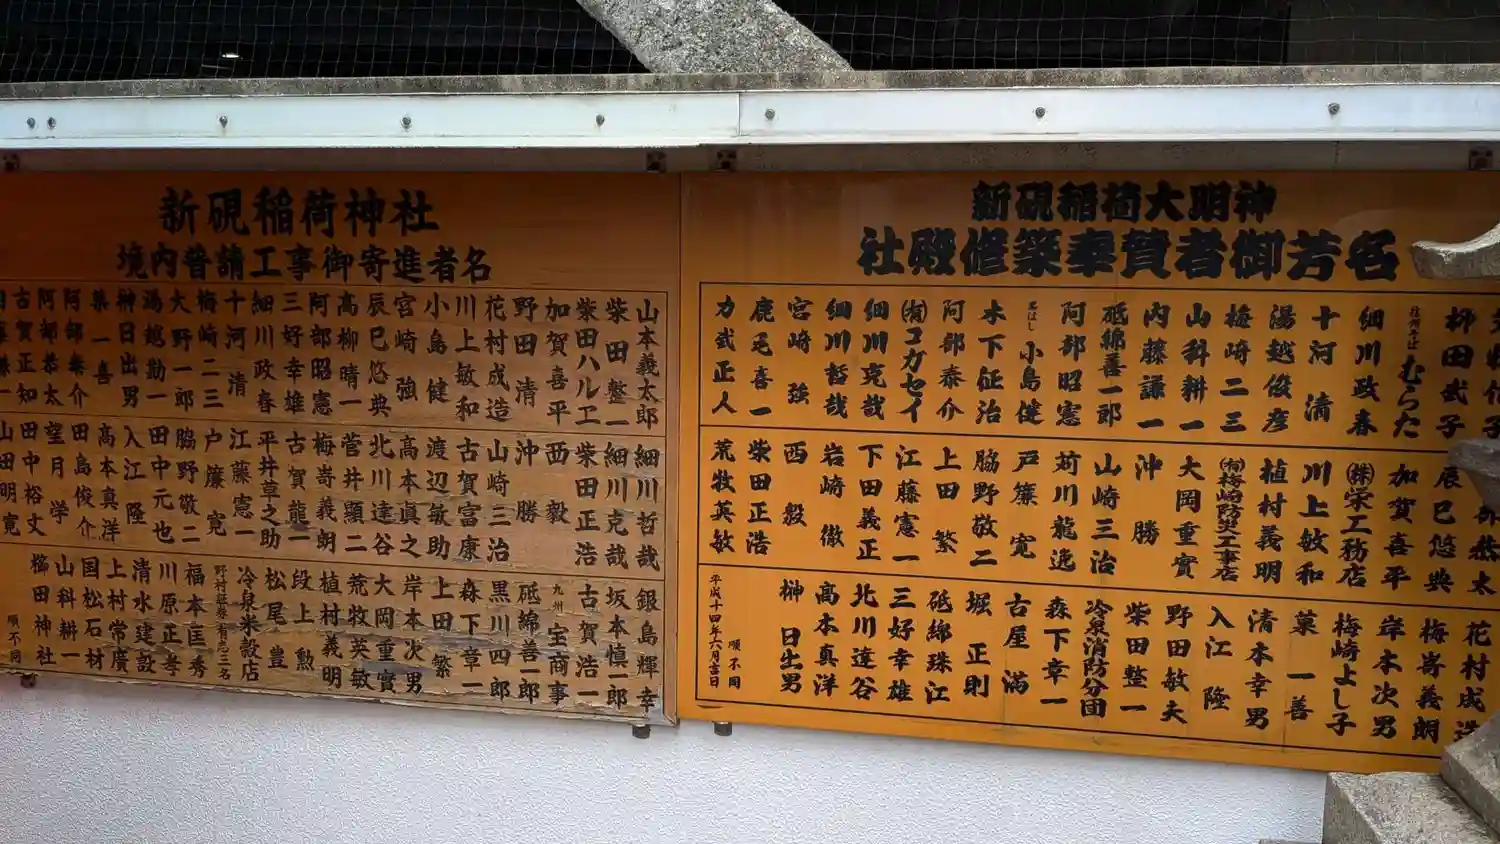 新硯稲荷大明神
社殿修築奉賛者御芳名
柳田武子
信州そば むらた
細川政春
十河 清
湯越俊彦
梅崎二三
山科耕一
内藤謙一
砥綿善一郎
阿部昭憲
小島健
木下征治
阿部泰介
(有)コガセイ
細川克哉
細川哲哉
宮崎 強
鹿毛喜一
力武正人
恭太
辰巳悠典
加賀喜平
(株)栄工務店
川上敏和
植村義明
(有)梅崎防災工事店
大岡重實
沖 勝
山崎三治
苅川龍逸
戸簾 寛
脇野敬二
上田 繁
江藤憲一
下田義正
岩崎 徹
西 毅
柴田正浩
荒牧英敏
花村成造
梅嵜義朗
岸本次男
梅崎よし子
菓 一善
清本幸男
入江 隆
野田敏夫
柴田整一
冷泉消防分団
森下幸一
古屋 満
堀 正則
砥綿珠江
三好幸雄
北川達谷
高本真洋
榊 日出男
順不同
平成十四年六月吉日
新硯稲荷神社
境内普請工事御寄進者名
山本義太郎
柴田整一
柴田ハルエ
加賀喜平
野田 清
花村成造
川上敏和
小島 健
宮崎 強
辰巳悠典
高柳晴一
阿部昭憲
三好幸雄
細川政春
十河 清
梅崎二三
大野一郎
湯越勘一
榊日出男
菓 一喜
阿部泰介
阿部恭太
古賀正知
細川哲哉
細川克哉
柴田正浩
西 毅
沖 勝
山崎三治
古賀富康
渡辺敏助
高本真之
北川達谷
菅井顯二
梅嵜義朗
古賀龍一
平井草之助
江藤憲一
戸簾 寛
脇野敬二
田中元也
入江 隆
高本真洋
田島俊介
望月 学
田中裕丈
山田明寛
銀島輝幸
坂本慎一郎
古賀浩一
九州 宝商事
砥綿善一郎
黒川四郎
森下章一
上田 繁
岸本次男
大岡重實
荒牧英敏
植村義明
段上 勲
松尾 豊
冷泉米穀店
野村証券有志三名
福本匡秀
川原正孝
清水建設
上村常廣
国松石材
山科耕一
櫛田神社
順不同